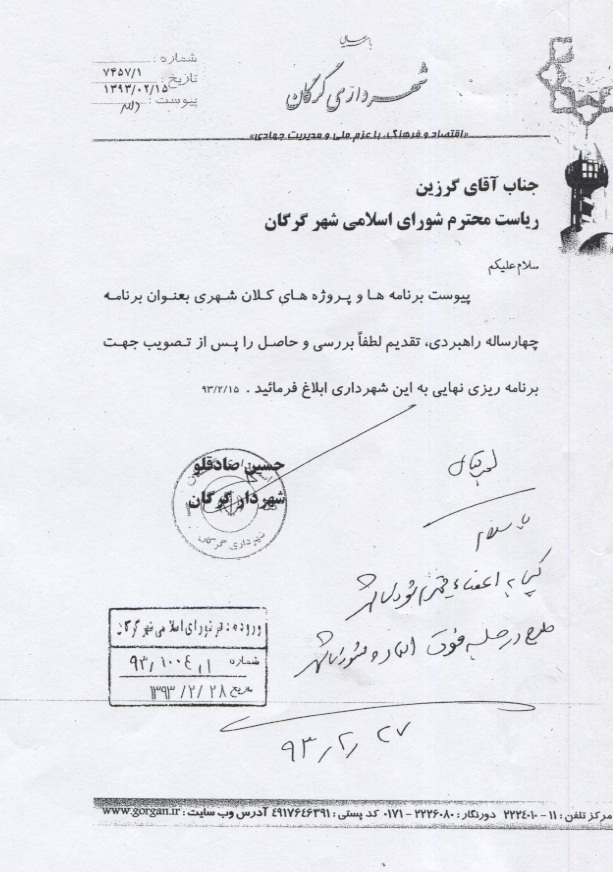 شهرداری گرگان
شماره :
۷۴۵۷/۱
تاریخ :
۱۳۹۳/۰۲/۱۵
پیوست : دارد
«اقتصاد و فرهنگ، با عزم ملی و مدیریت جهادی»
جناب آقای گرزین
ریاست محترم شورای اسلامی شهر گرگان
سلام علیکم
پیوست برنامه ها و پروژه های کلان شهری بعنوان برنامه
چهارساله راهبردی، تقدیم لطفاً بررسی و حاصل را پس از تصویب جهت
برنامه ریزی نهایی به این شهرداری ابلاغ فرمائید . ۹۳/۲/۱۵
حسین صادقلو
شهردار گرگان
شهرداری گرگان
با سلام
کپی به اعضاء محترم شورا
طرح در جلسه فوق
۹۳/۲/۲۷
ورود به دفتر شورای اسلامی شهر گرگان
شماره
تاریخ ۱۳۹۳/۲/۲۸
مرکز تلفن : ۱۱ - ۲۲۲۴۰۱۰ دورنگار : ۲۲۲۶۰۸۰ - ۰۱۷۱ کد پستی : ۴۹۱۷۶۴۶۳۹۱ آدرس وب سایت : www.gorgan.ir